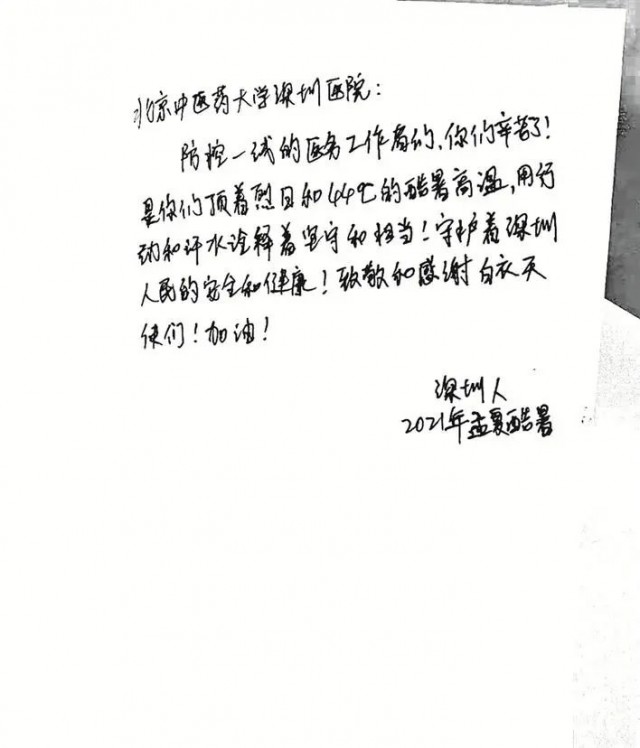 北京中医药大学深圳医院：
防控一线的医务工作者们，你们辛苦了！
是你们顶着烈日和44℃的酷暑高温，用行
动和汗水诠释着坚守和担当！守护着深圳
人民的安全和健康！致敬和感谢白衣天
使们！加油！
深圳人
2021年孟夏酷暑